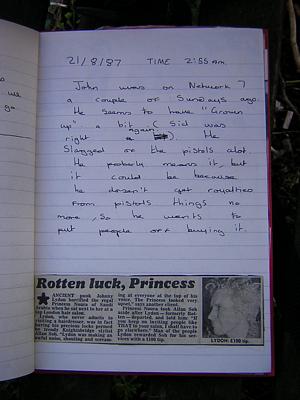 21/8/87 TIME 2:55 AM.
John was on Network 7
a couple of Sundays ago.
He seems to have "Grown
up" a bit (Sid was
right again) He
Slagged off the pistols alot
He probaly means it, but
it could be because
he doesn't get royalties
from pistols things no
more, so he wants to
put people off buying it.
Rotten luck, Princess
ANCIENT punk Johnny
horrified the royal
Princess
who sat next to her at a
top London hair salon.
Lydon, who never admits to
visiting a hairdresser, was in fact
having his precious locks permed
by trendy Knightsbridge stylist
Allan Soh. "Lydon was making an
awful noise, shouting and scream-
ing at everyone at the top of his
voice. The Princess looked very
upset," said
Princess took Allan Soh
aside after Lydon—formerly Rot-
ten—departed, and told him: "If
you keep on inviting people like
THAT to your salon, I shall have to
go elsewhere." Man of the people
Lydon rewarded Soh for his ser-
vices with a £100 tip.
LYDON: £100 tip.